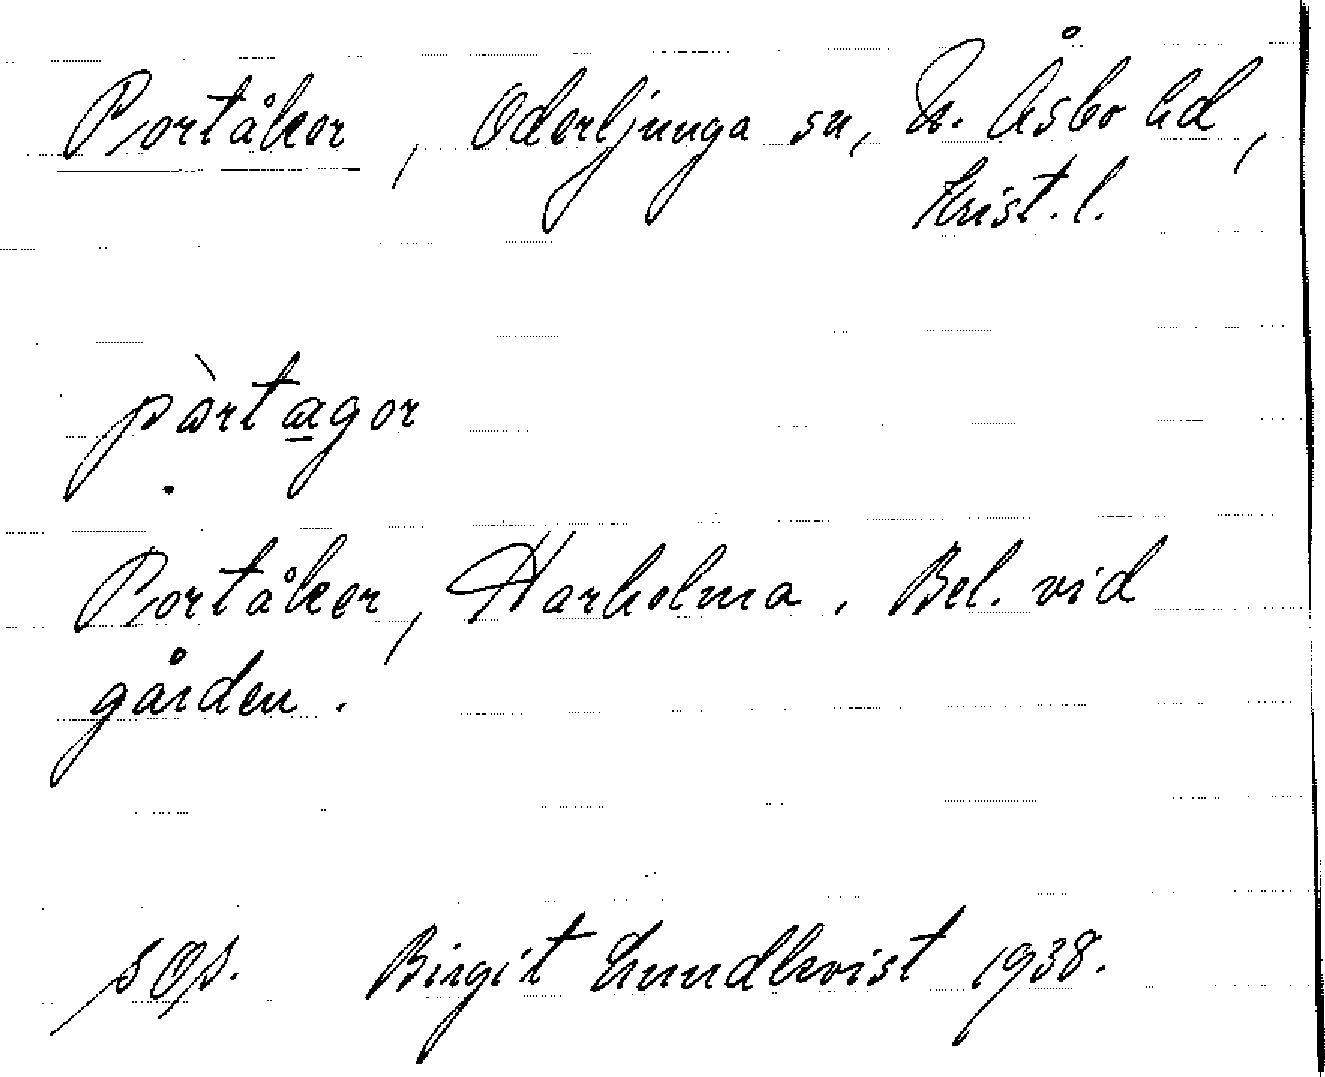 Portåker, Oderljunga sn, N. Åsbo hd,
Krist. l.
pàrtagor
Portåker, Harholma. Bel. vid
gården.
Birgit Lundkvist 1938.